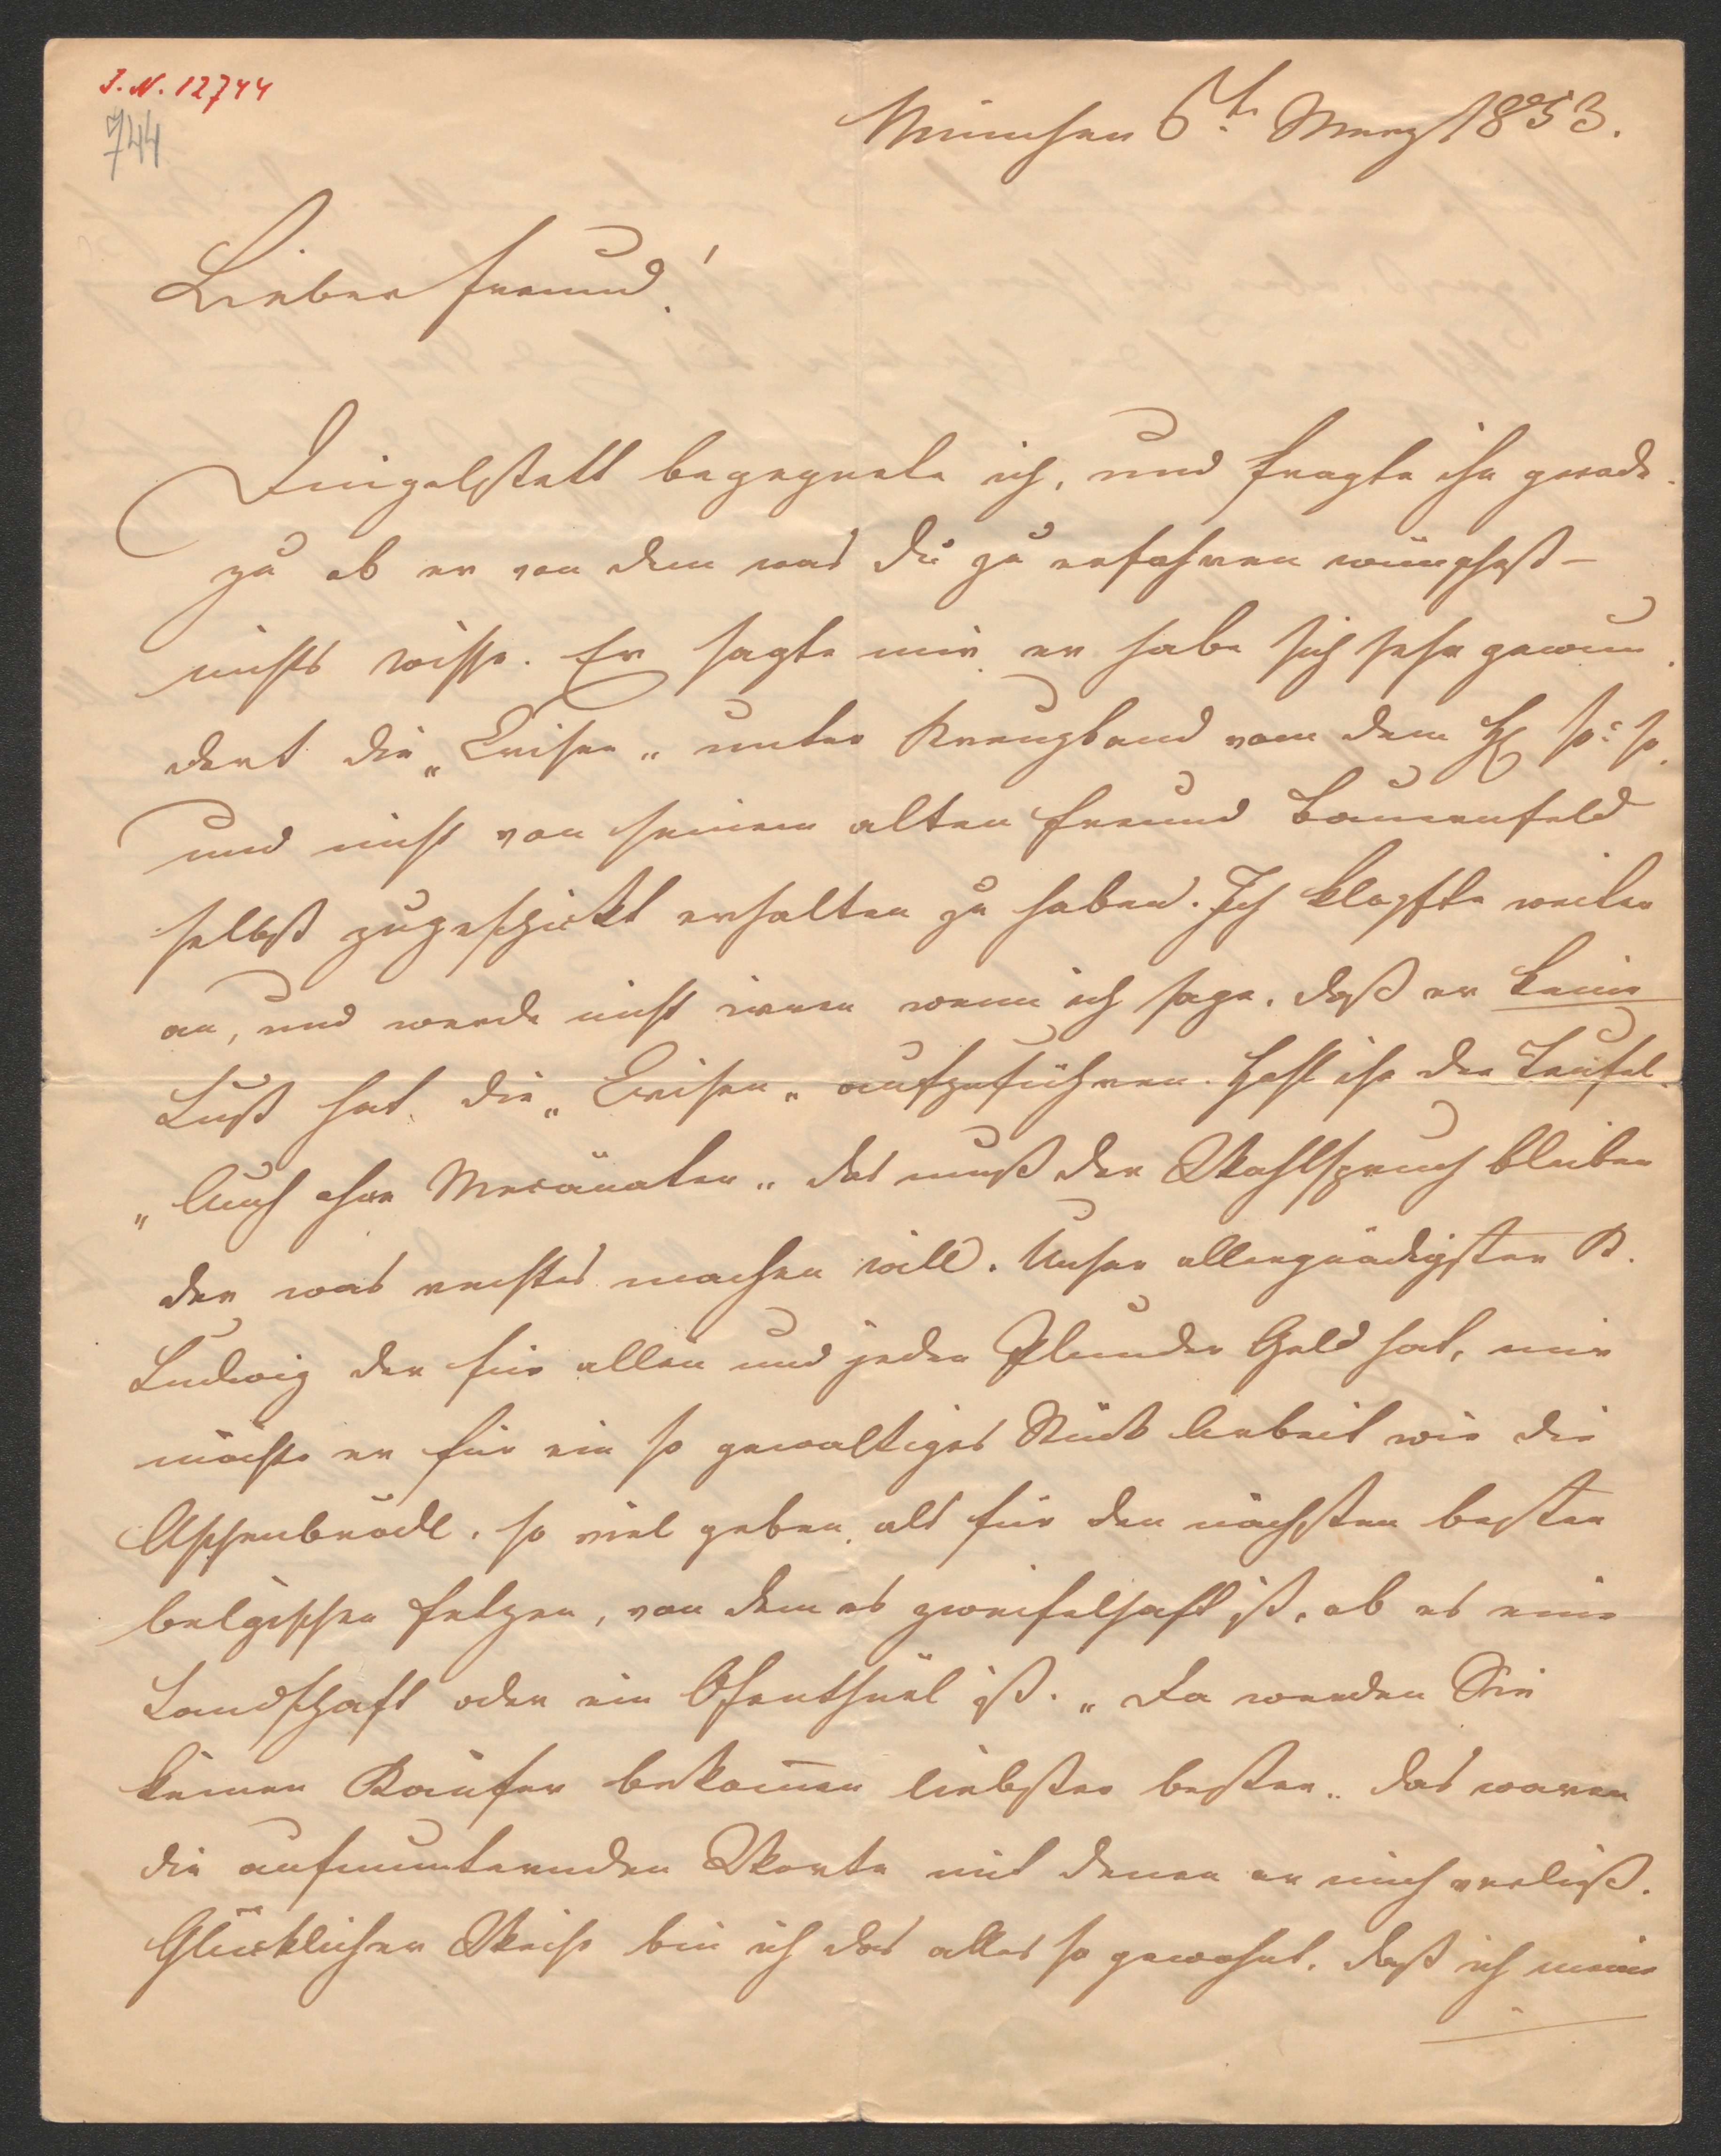 J. N. 12744
744
München 6t Merz 1853.
Lieber Freund!
Dingelstett begegnete ich, und fragte ihn gerade
zu ob er von dem was du zu erfahren wünschest –
nichts wisse. Er sagte mir er habe sich sehr gewun
dert die „Crisen„ unter Kreuzband vom dem H so: so
und nicht von seinem alten Freund Bauernfeld
selbst zugeschickt erhalten zu haben. Ich klopfte weiter
an, und werde nicht irren wenn ich sage, daß er keine
Lust hat die „Crisen„ aufzuführen. Hohl ihn der Teufel.
„Auch ohne Mecänaten„ das muß der Wahlspruch bleiben
der was rechtes machen will. Unser allergnädigster K.
Ludwig der für allen und jeden Plunder Geld hat, mir
möchte er für ein so gewaltiges Stück Arbeit wie die
Aschenbrödl, so viel geben, als für den nächsten besten
belgischen Fetzen, von dem es zweifelhaft ist, ob es eine
Landschaft oder ein Ofenthürl ist. „Da werden Sie
keinen Käufer bekom̅en liebster bester„ das waren
die aufmunternden Worte mit denen er mich verließ.
Glücklicher Weise bin ich das alles so gewohnt, daß ich meine